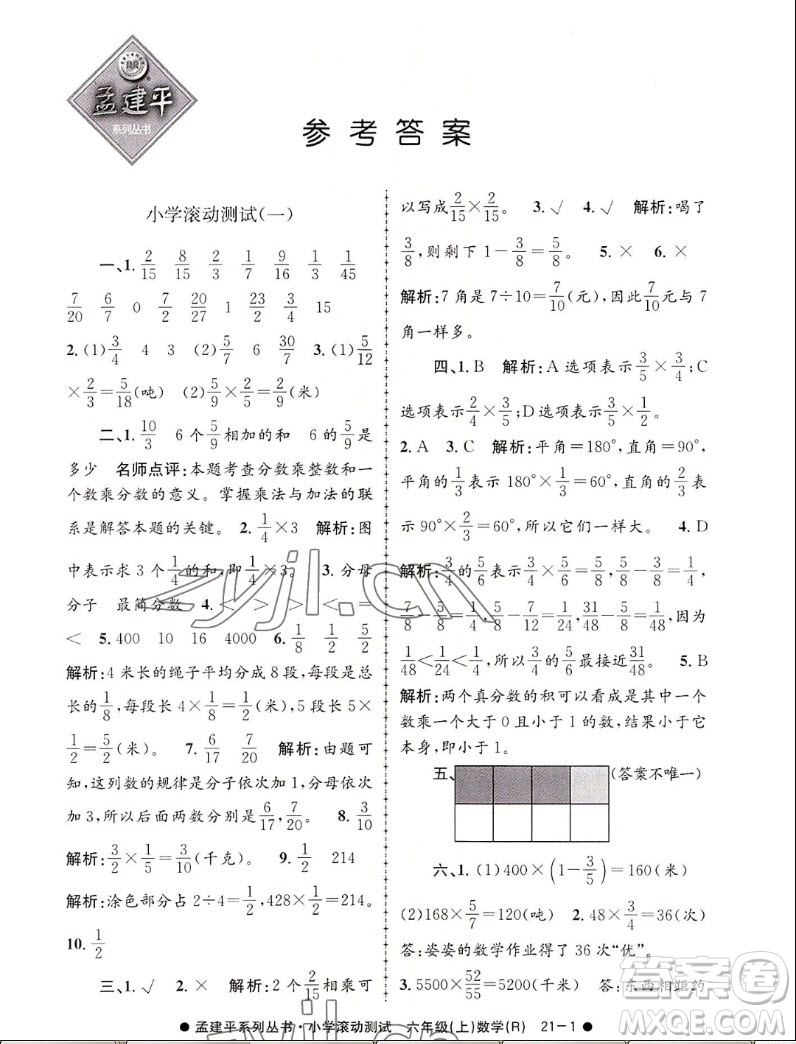 孟建平
系列丛书
参考答案
小学滚动测试(一)
一、1. 2/15 8/15 2/3 1/6 9/16 1/3 1/45
7/20 6/7 0 7/2 20/27 1 23/2 3/4 15
2.(1)3/4 4 3 (2)5/7 6 30/7 3.(1)5/12
×2/3=5/18(吨) (2)5/9×2/5=2/9(米)
二、1. 10/3 6个5/9相加的和 6的5/9是
多少 名师点评:本题考查分数乘整数和一
个数乘分数的意义。掌握乘法与加法的联
系是解答本题的关键。 2. 1/4×3 解析:图
中表示求3个1/4的和,即1/4×3。 3. 分母
分子 最简分数 4. < > > =
< 5. 400 10 16 4000 6. 1/8 1/2 5/2
解析:4米长的绳子平均分成8段,每段是全长
的1/8,每段长4×1/8=1/2(米),5段长5×
1/2=5/2(米)。 7. 6/17 7/20 解析:由题可
知,这列数的规律是分子依次加1,分母依次
加3,所以后面两数分别是6/17,7/20。 8. 3/10
解析:1/2×1/5×3=3/10(千克)。 9. 1/2 214
解析:涂色部分2÷4=1/2,428×1/2=214。
10. 1/2
三、1. √ 2. × 解析:2个2/15相乘可
以写成2/15×2/15。 3. √ 4. √ 解析:喝了
3/8,则剩下1-3/8=5/8。 5. × 6. ×
解析:7角是7÷10=7/10(元),因此7/10元与7
角一样多。
四、1. B 解析:A选项表示3/5×3/4;C
选项表示2/4×3/5;D选项表示2/5×3/4。
2. A 3. C 解析:平角=180°,直角=90°,
平角的1/3表示180°×1/3=60°,直角的2/3表
示90°×2/3=60°,所以它们一样大。 4. D
解析:3/4×5/6=5/8,3/4的5/6是5/8,
7/8-5/8=1/4,5/8-7/12=1/24,31/48-5/8=1/48,
1/48<1/24<1/4,所以3/4的5/6最接近31/48。 5. B
解析:两个真分数的积可以看成是其中一个
数乘一个大于0且小于1的数,结果小于它
本身,即小于1。
五、(答案不唯一)
六、1.(1)400×(1-3/5)=160(米)
(2)168×5/7=120(吨) 2. 48×3/4=36(次)
答:姿姿的数学作业得了36次“优”。
3. 5500×52/55=5200(千米) 答:东西相距约
zyjl.cn
答案圈
●孟建平系列丛书·小学滚动测试 六年级(上)数学(R) 21-1●